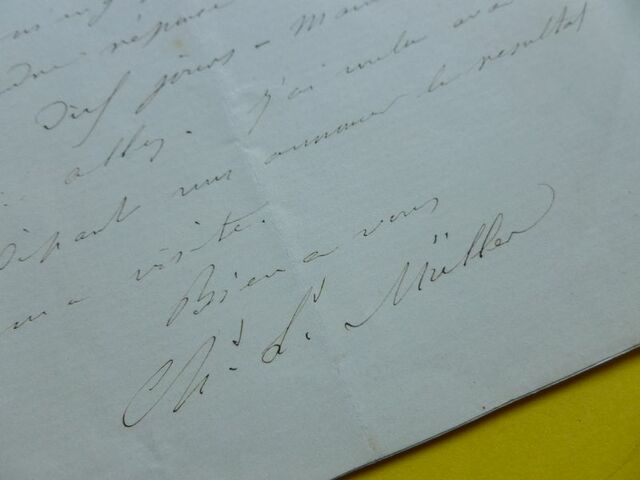 réponse
Dix jours - Mais
allez. J'ai voulu ava
départ vous annoncer le résultat
ma visite.
Bien a vous
Ch.s L.s Müller